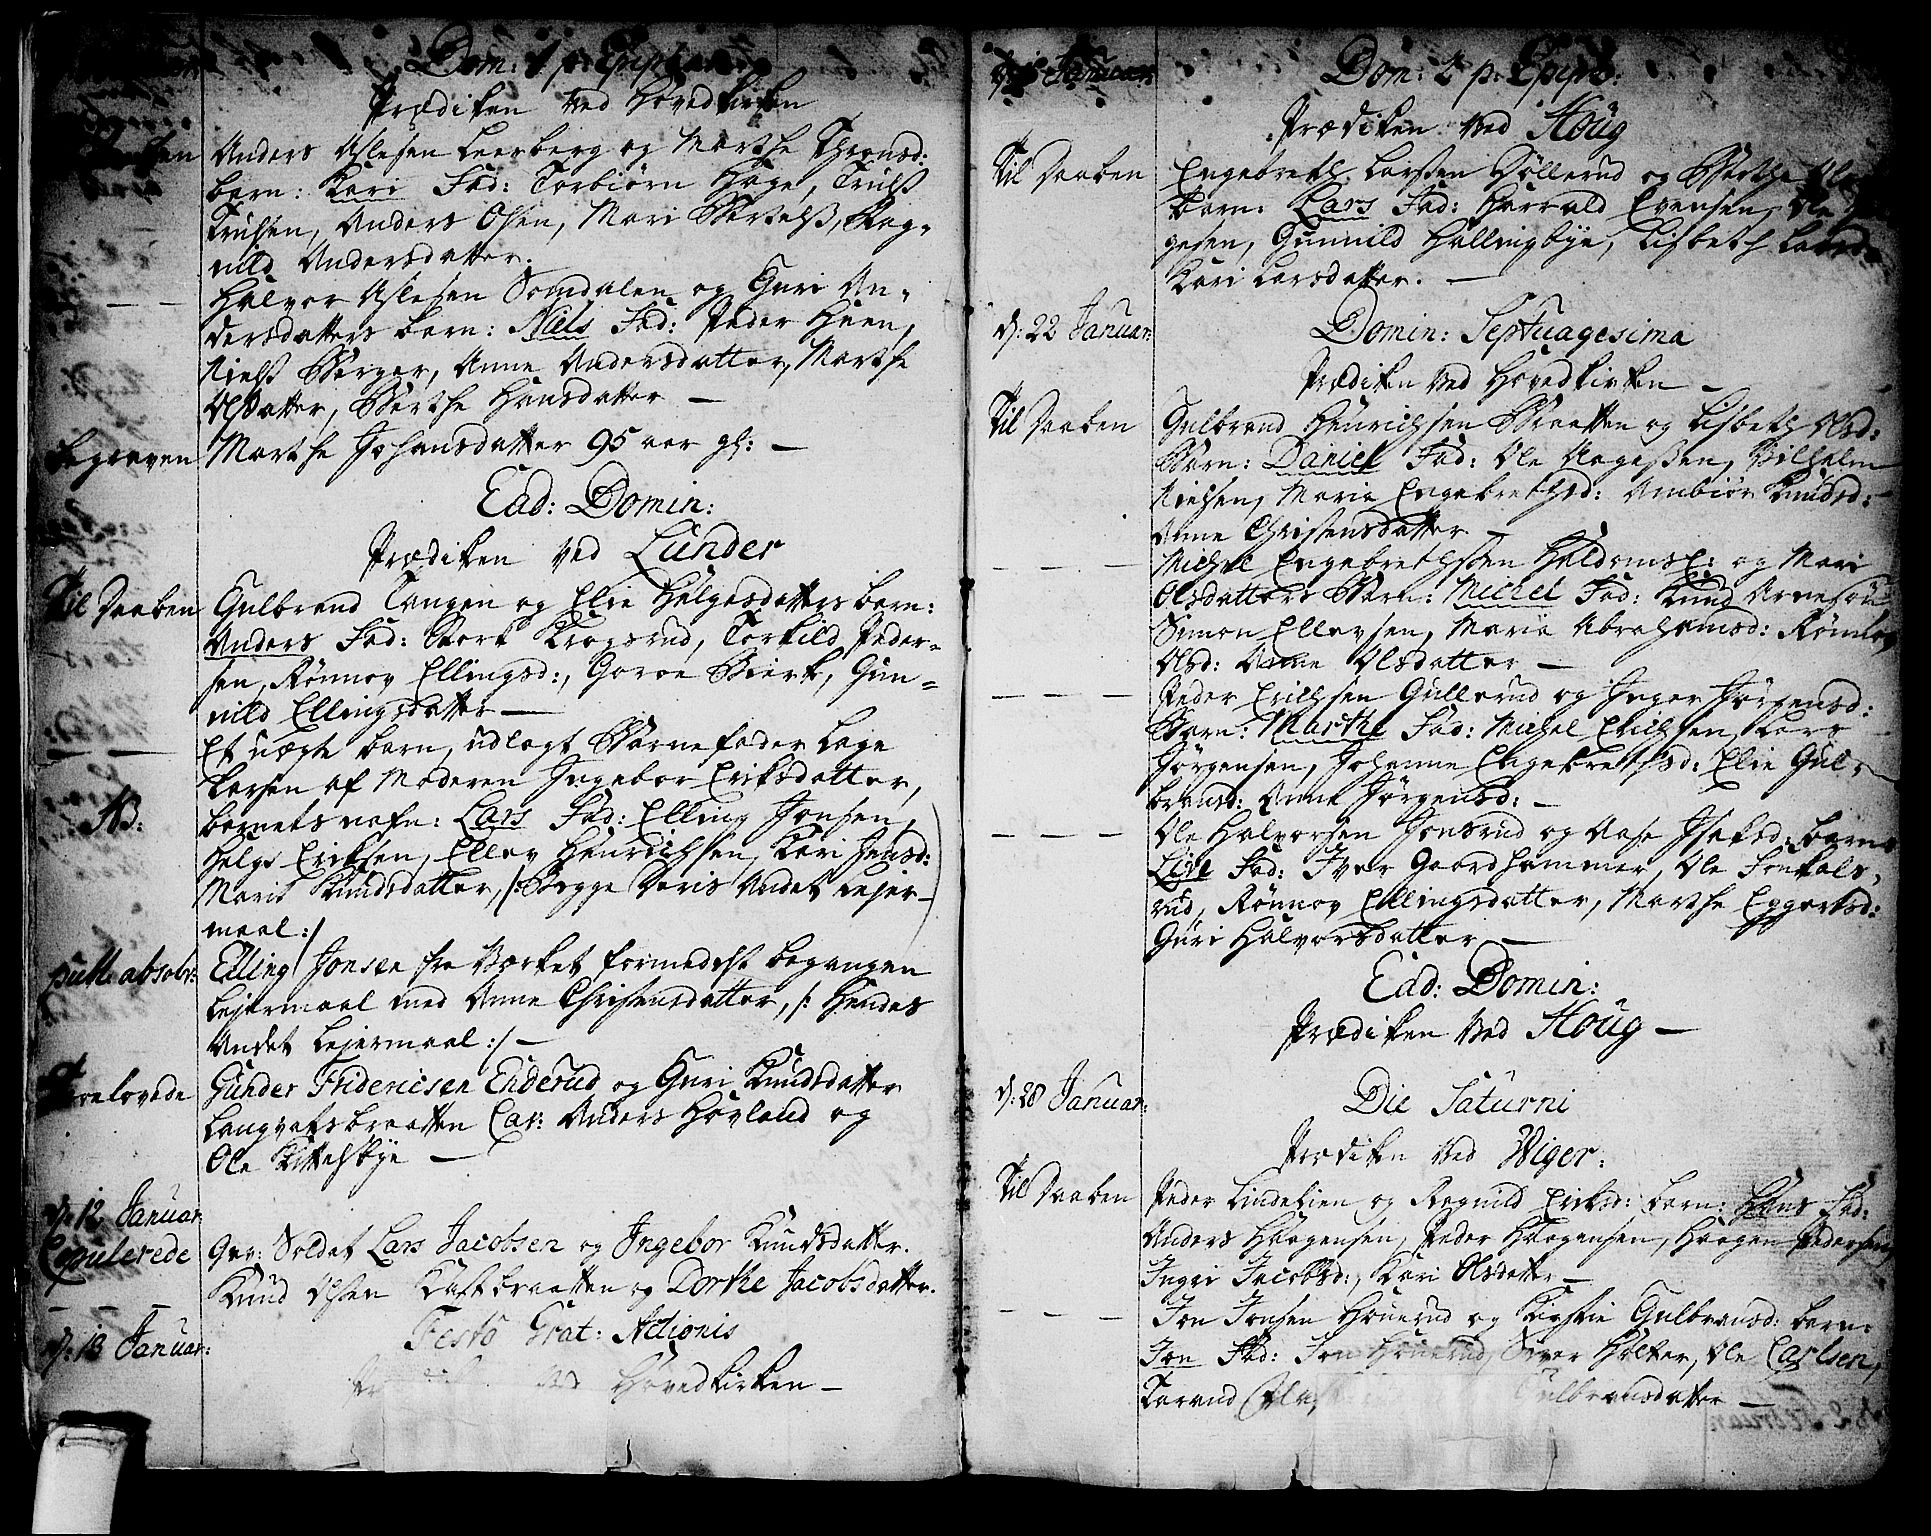 Dom: 1 p: Epiphan:
Prædiken ved Hovedkirken
Anders Aslesen Leerberg og Marthe Thronsd:
barn: Kari Fad: Torbiørn Hage, Truls
Trulsen, Anders Olsen, Mari Bertelsd, Rag-
nild Andersdatter.
Halvor Aslesen Somdalen og Guri An-
dersdatters barn: Niels Fad: Peder Heen,
Niels Berger, Anne Andersdatter, Marthe
Olsdatter, Berthe Hansdatter —
Begraven Marthe Johansdatter 95 aar gl: —
Ead: Domin:
Prædiken ved Lunder
Til Daaben Gulbrand Tangen og Elie Helgesdatters barn:
Anders Fad: Stork Krogsrud, Torkild Peder-
sen, Rønnov Ellingsd:, Goroe Bierk, Gun-
nild Ellingsdatter —
Et uægte barn, udlagt Barnefader Lage
Larsen af Moderen Ingebor Eriksdatter,
NB: barnets nafn: Lars Fad: Elling Jonsen,
Helge Eriksen, Ellev Henrichsen, Kari Jensd:
Marit Knudsdatter, /: Begge Deris Andet Lejer-
maal :/
publ: absolv: Elling Jonsen fra Værket formedelst begangen
Lejermaal med Anne Christensdatter, /: Hendes
Andet Lejermaal :/ —
Trolovede Gunder Fridericsen Enderud og Guri Knudsdatter
Langvatsbraatten Cav: Anders Hovland og
Ole Kittelsbye —
d: 12 Januar
Copulerede Gev: Soldat Lars Jacobsen og Ingebor Knudsdatter.
Knud Olsen Kastbraatten og Dorthe Jacobsdatter.
d: 13 Januar: Festo Grat: Actionis
ved Hovedkirken —
Januar: Dom: 2 p: Epiph:
Prædiken ved Houg
Til Daaben Engebreth Larsen Søllerud og Berthe
barn: Lars Fad: Harrald Evensen, Ole
gesen, Gunnild Hallingbye, Lisbeth Larsd
Kari Larsdatter. —
d: 22 Januar: Domin: Septuagesima
Prædiken ved Hovedkirken —
Til Daaben Gulbrand Henrichsen Braatten og Lisbeth Olsd:
Barn: Daniel Fad: Ole Aagesen, Vilhelm
Nielsen, Marie Engebrethsd: Ambiør Knudsd:
Anne Christensdatter —
Michel Engebrethsen Holdoms E: og Mari
Olsdatters Barn: Michel Fad: Knud Arnesøn
Simon Ellevsen, Maria Abrahamsd: Rønnov
Olsd: Anne Olsdatter —
Peder Erichsen Gullerud og Inger Jørgensd:
Barn: Marthe Fad: Michel Erichsen, Lars
Jørgensen, Johanne Engebrethsd: Elie Gul-
bransd: Anne Jørgensd: —
Ole Halvorsen Jonsrud og Aase Isaksd: barn
Live Fad: Iver Gaardhammer, Ole Fonkals-
rud, Rønnov Ellingsdatter, Marthe Eggertsd:
Guri Halvorsdatter —
Ead: Domin:
Prædiken ved Houg —
d: 28 Januar: Die Saturni
Prædiken ved Wiger:
Til Daaben Peder Lindelien og Ragnild Eriksd: barn: Hans Fad:
Anders Haagensen, Peder Haagensen, Haagen Pedersen,
Inger Jacobsd:, Kari Olsdatter —
Jon Jonsen Houerud og Kirstie Gulbransd: barn:
Jon Fad: Jon Houerud, Iver Holker, Ole Carlsen,
Gulbransdatter —